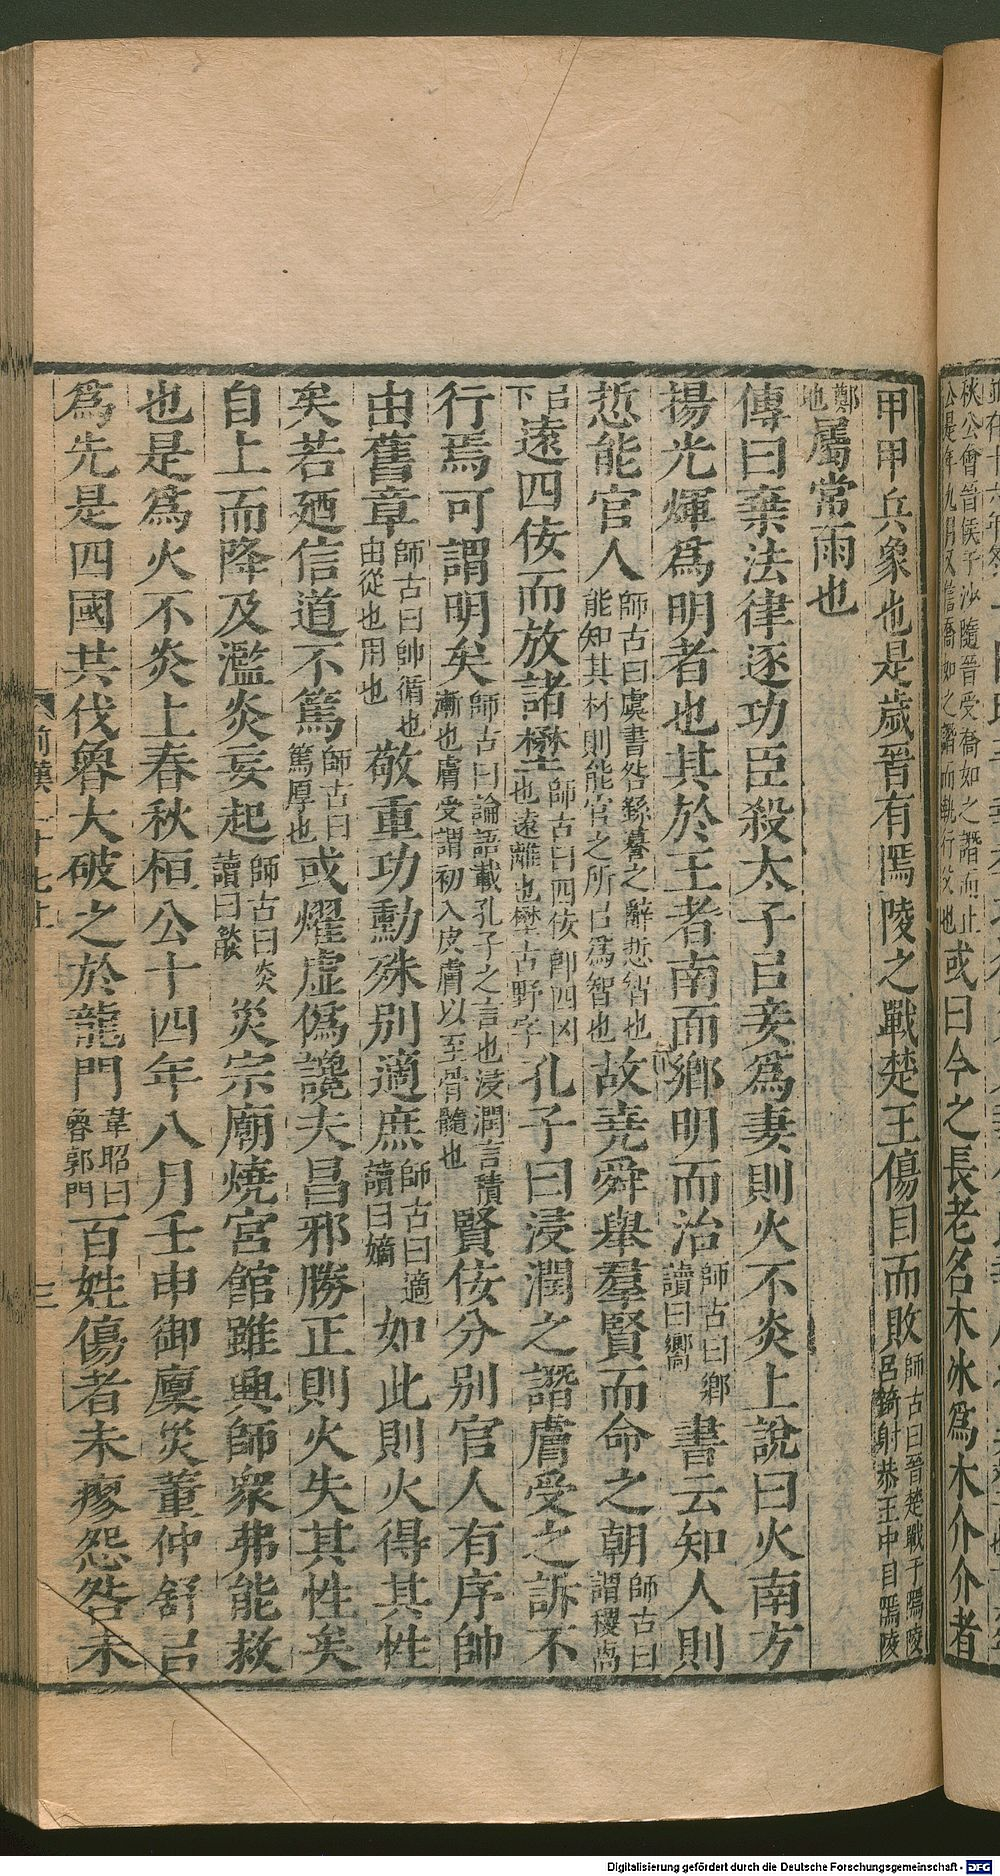 甲甲兵象也是歲晉有隝陵之戰楚王傷目而敗師古曰晉楚戰于隝陵吕錡射恭王中目隝陵
鄭也屬常雨也
傳曰棄法律逐功臣殺太子㠯妾爲妻則火不炎上說曰火南方
揚光煇爲明者也其於王者南面鄉明而治師古曰鄉讀曰嚮書云知人則
悊能官人師古曰虞書咎繇謩之辭悊智也能知其材則能官之所㠯爲智也故堯舜舉羣賢而命之朝師古曰謂稷卨
㠯下遠四佞而放諸壄師古曰四佞卽四凶也遠離也壄古野字孔子曰浸潤之譖膚受之訴不
行焉可謂明矣師古曰論語載孔子之言也浸潤言積漸也膚受謂初入皮膚以至骨髓也賢佞分别官人有序帥
由舊章師古曰帥循也由從也用也敬重功勳殊别適庶師古曰適讀曰嫡如此則火得其性
矣若廼信道不篤師古曰篤厚也或燿虛僞讒夫昌邪勝正則火失其性矣
自上而降及濫炎妄起師古曰炎讀曰燄災宗廟燒宮館雖興師衆弗能救
也是爲火不炎上春秋桓公十四年八月壬申御廩災董仲舒㠯
爲先是四國共伐魯大破之於龍門韋昭曰魯郭門百姓傷者未瘳怨咎未
前漢二十七上
三
秋公會晉侯于沙隨晉受喬如之譖而止
公是年九月又
或曰今之長老名木冰爲木介介者
Digitalisierung gefördert durch die Deutsche Forschungsgemeinschaft - DFG